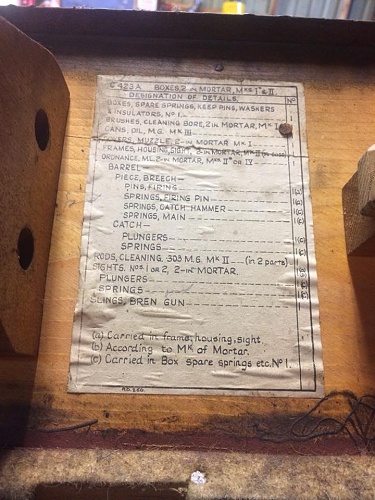 C 423A BOXES, 2-in MORTAR, Mks I & II.
DESIGNATION OF DETAILS. No
BOXES, SPARE SPRINGS, KEEP PINS, WASHERS
& INSULATORS, No 1.
BRUSHES, CLEANING BORE, 2-in MORTAR, Mk I
CANS, OIL, M.G. Mk III
MUZZLE, 2-in MORTAR Mk I
FRAMES, HOUSING, SIGHT, MORTAR, Mk II (in case)
ORDNANCE, M.L. 2-in MORTAR, Mks II* or IV
BARREL
PIECE, BREECH
PINS, FIRING
SPRINGS, FIRING PIN
SPRINGS, CATCH HAMMER
SPRINGS, MAIN
CATCH
PLUNGERS
SPRINGS
RODS, CLEANING .303 M.G. Mk II (in 2 parts)
SIGHTS, Nos 1 or 2, 2-in MORTAR.
PLUNGERS
SPRINGS
SLINGS, BREN GUN
(a) Carried in frame, housing, sight.
(b) According to Mk of Mortar.
(c) Carried in Box spare springs etc. No 1.